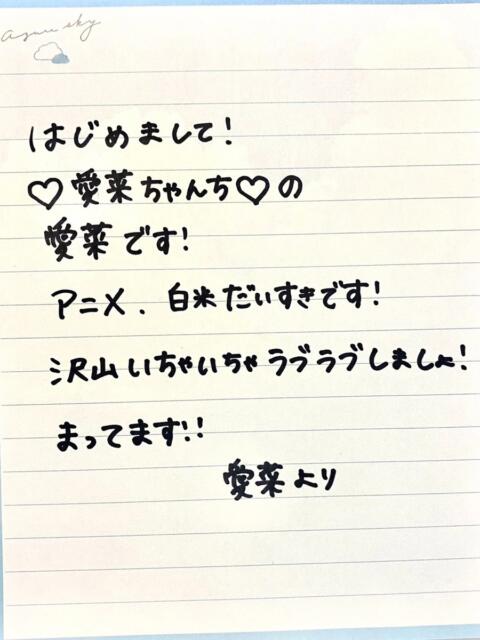 azure sky
はじめまして!
♡愛菜ちゃんち♡の
愛菜です!
アニメ、白米だいすきです!
沢山いちゃいちゃラブラブしましょ!
まってます!!
愛菜より